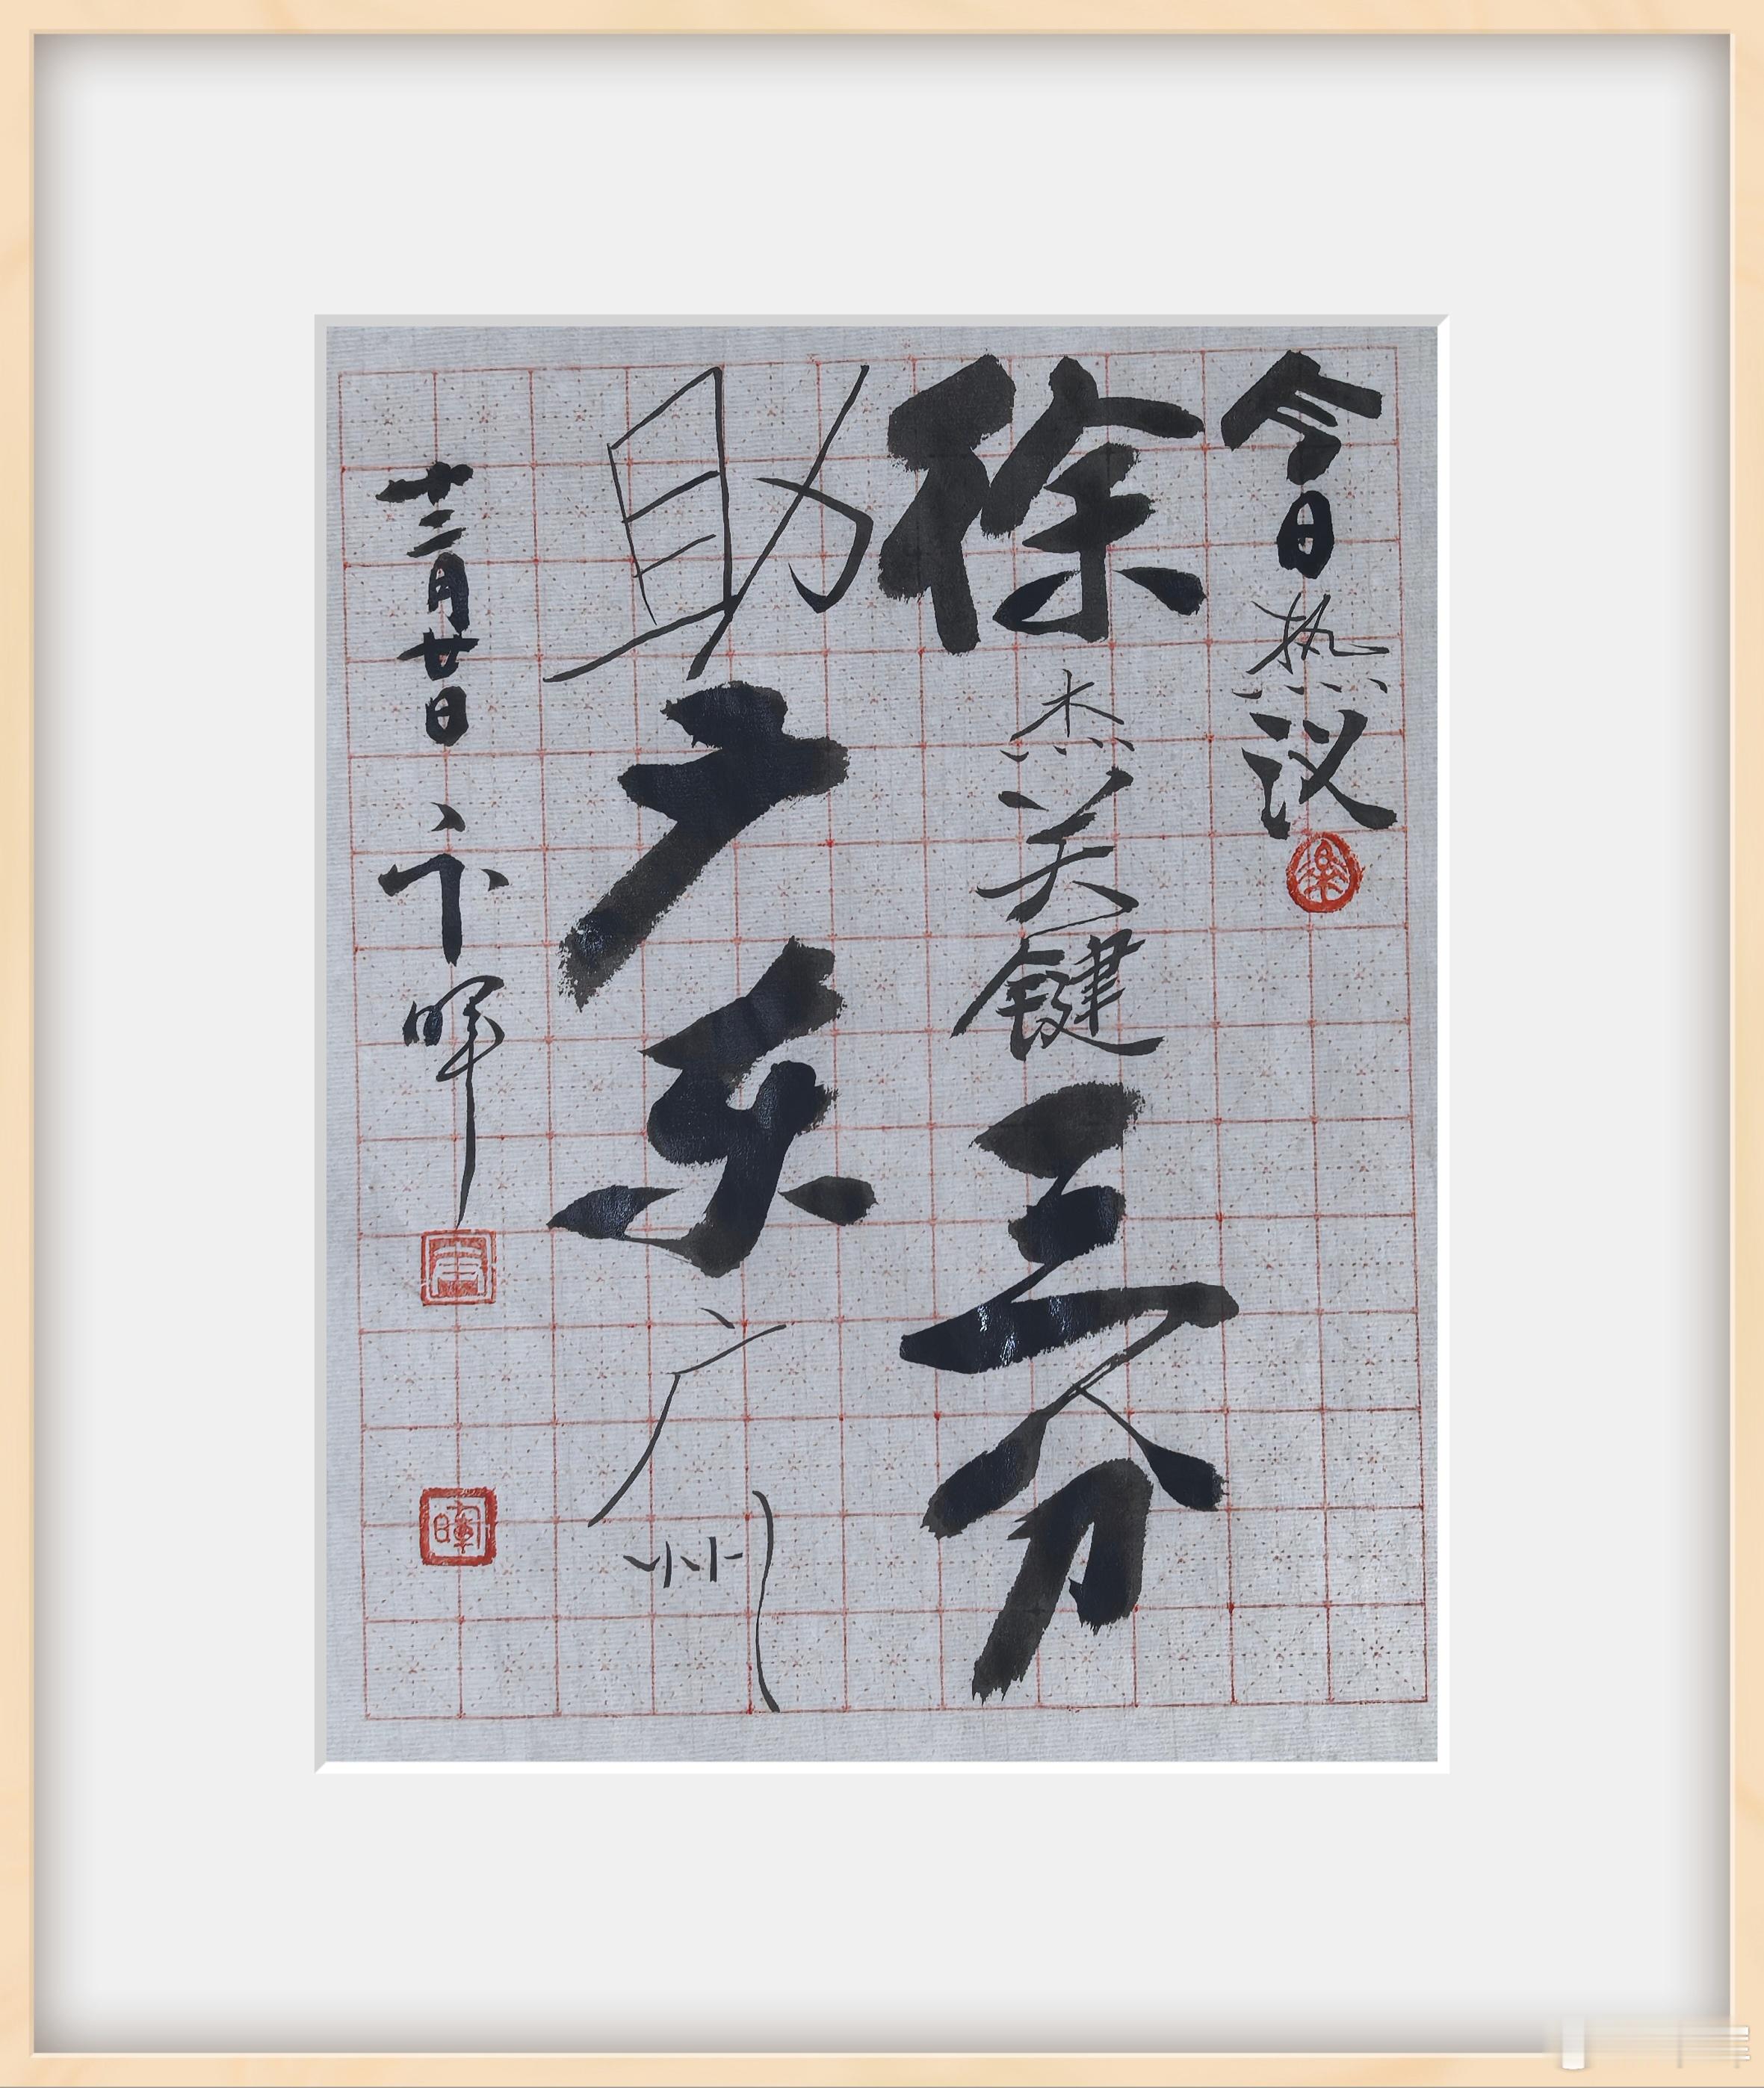 今日热议
徐杰关键三分
助广东广州
十二月廿日卞晖
晖